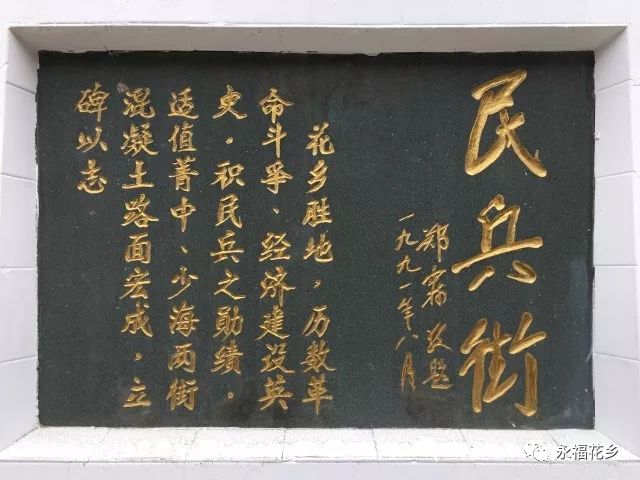 民兵街
郑霖题
一九九一年八月
花乡胜地，历数革
命斗争、经济建设英
史，积民兵之勋绩。
适值菁中、少海两街
混凝土路面宏成，立
碑以志
永福花乡